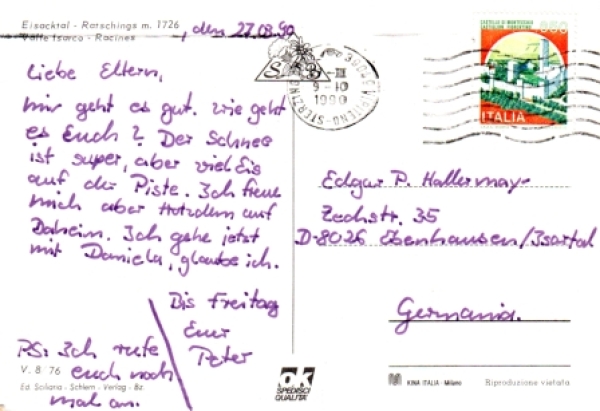 Eisacktal - Ratschings m. 1726
Valle Isarco - Racines
, den 27.03.90
Liebe Eltern,
mir geht es gut. wie geht
es Euch? Der Schnee
ist super, aber viel Eis
auf der Piste. Ich freue
mich aber trotzdem auf
Daheim. Ich gehe jetzt
mit Daniela, glaube ich.
Bis Freitag
Euer
Peter
PS: Ich rufe
euch noch
mal an.
V. 8/76
Ed. Soliana - Schlern - Verlag - Bz.
9-10
1990
STERZING
650
ITALIA
Edgar P. Hallermay-
Zechstr. 35
D-8026 Ebenhausen/Isartal
Germania.
ok
SPEDISCI
QUALITÀ
KINA ITALIA - Milano
Riproduzione vietata